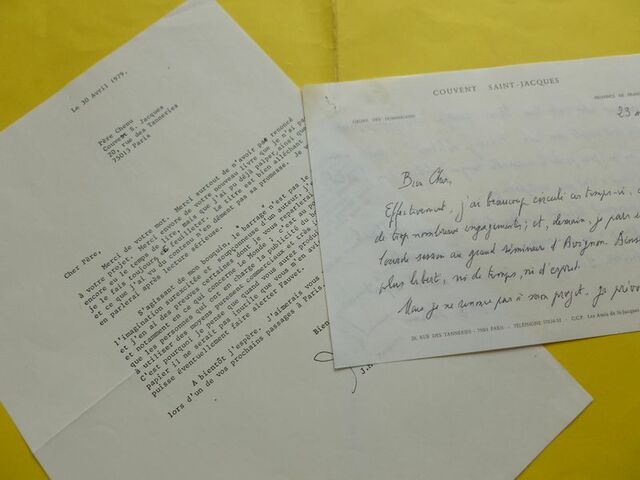 Le 30 Avril 1979.
Père Chenu
Couvent S. Jacques
20, rue des Tanneries
75013 Paris
Cher Père,
Merci de votre mot. Merci surtout de n'avoir pas renoncé
à votre projet. Merci encore de votre nouveau livre que je n'ai pas
encore eu le temps de lire, mais que j'ai pu déjà palper, ainsi que
je le fais toujours, et feuilleter. Le titre est bien alléchant
et ce que j'ai vu du contenu n'en dément pas sa promesse. Je
en parlerai après lecture sérieuse.
S'agissant de mon bouquin, le "barrage" n'est pas le
l'imagination surexcitée et soupçonneuse d'un auteur, j'
et j'en ai des preuves certaines dont je vous reparlerai
et notamment en ce qui concerne le Monde, j'ai
que les personnes qui ont en charge la publicité du
à utiliser des moyens purement commerciaux et très
C'est pourquoi je pense que quand vous aurez
papier il ne serait pas inutile que vous m'en
puisse éventuellement faire alerter Fauvet.
A bientôt j'espère. J'aimerais vous
lors d'un de vos prochains passages à Paris.
Bien
COUVENT SAINT-JACQUES
ORDRE DES DOMINICAINS
PROVINCE DE FRANCE
23
Bien Cher,
Effectivement, j'ai beaucoup circulé ces temps-ci,
de trop nombreux engagements; et, demain, je pars
lourde session au grand séminaire d'Avignon.
plus libert, ni de temps, ni d'esprit.
Mais je ne renonce pas à mon projet. Je
20, RUE DES TANNERIES - 75013 PARIS - TÉLÉPHONE - C.C.P. Les Amis de St-Jacques